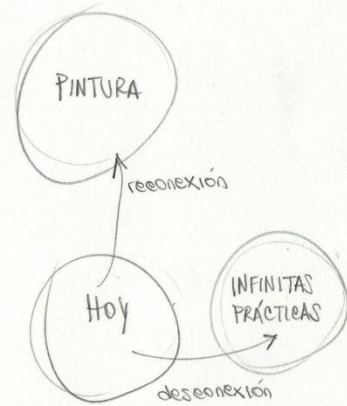 PINTURA
reconexión
HOY
INFINITAS
PRÁCTICAS
desconexión